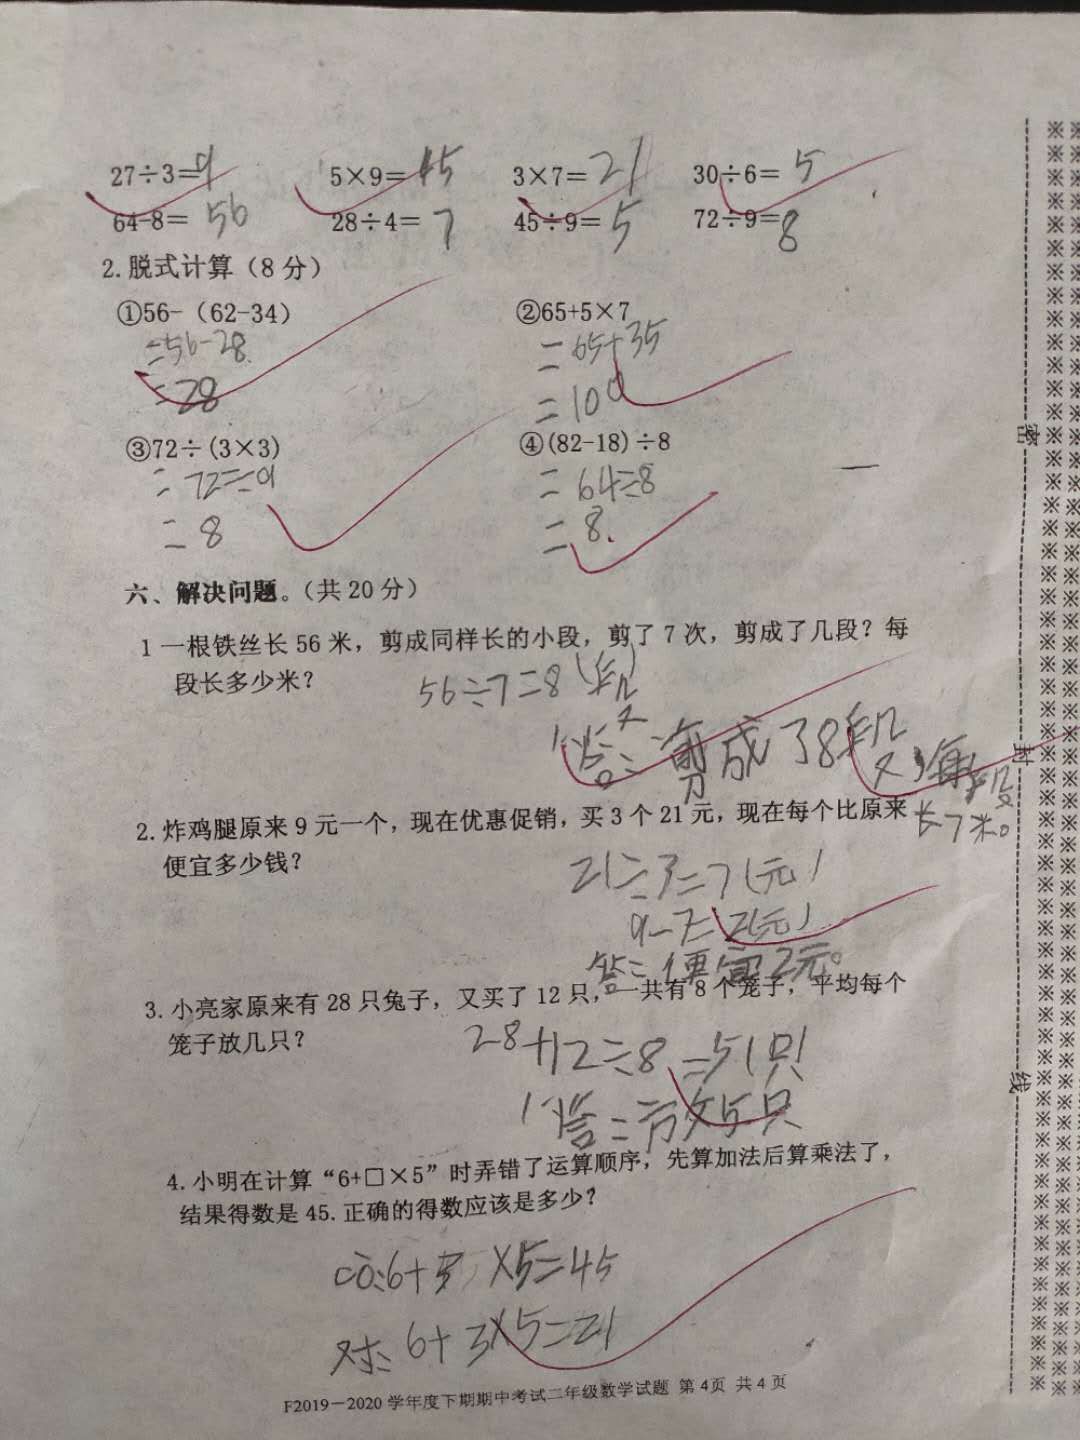 27÷3=9 5×9=45 3×7=21 30÷6=5
64-8=56 28÷4=7 45÷9=5 72÷9=8
2.脱式计算（8分）
①56-（62-34） ②65+5×7
=56-28 =65+35
=28 =100
③72÷(3×3) ④(82-18)÷8
=72÷9 =64÷8
=8 =8
六、解决问题。（共20分）
1 一根铁丝长56米，剪成同样长的小段，剪了7次，剪成了几段？每
段长多少米？
56÷7=8(段)
答：剪成了8段 每段
长7米。
2.炸鸡腿原来9元一个，现在优惠促销，买3个21元，现在每个比原来
便宜多少钱？
21÷3=7(元)
9-7=2(元)
答：便宜2元。
3.小亮家原来有28只兔子，又买了12只，一共有8个笼子，平均每个
笼子放几只？
28+12÷8=5(只)
答：放5只
4.小明在计算“6+□×5”时弄错了运算顺序，先算加法后算乘法了，
结果得数是45.正确的得数应该是多少？
6+3×5=45
对：6+3×5=21
F2019－2020学年度下期期中考试二年级数学试题 第4页 共4页
密
封
线